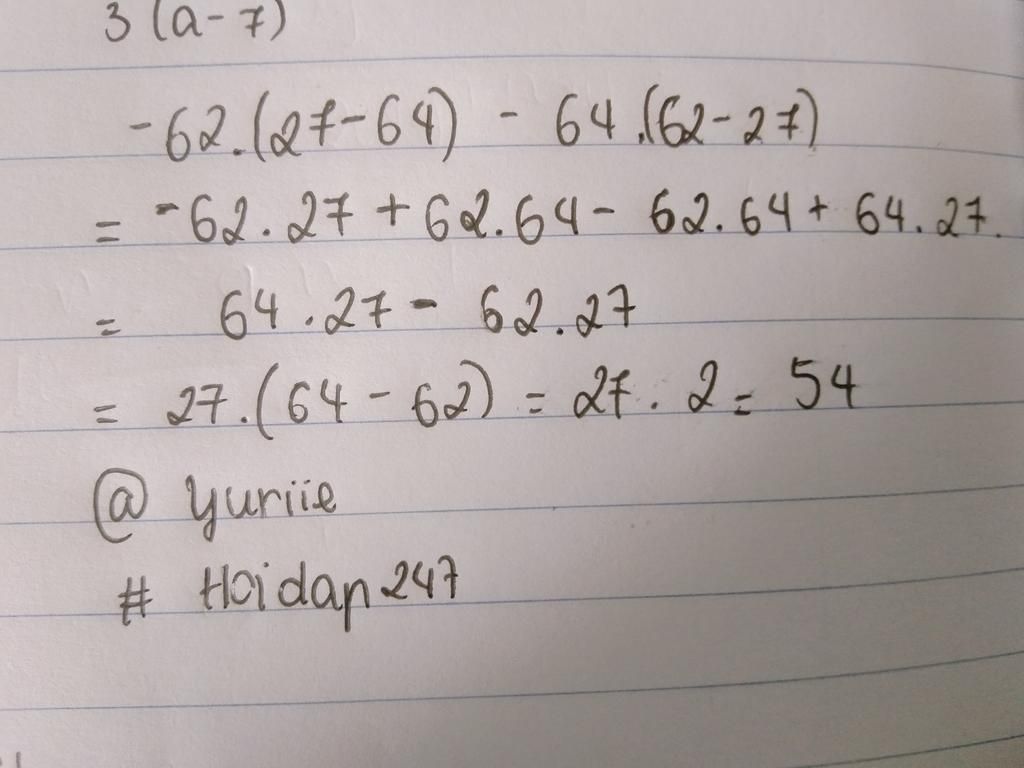 3 (a-7)
-62.(27-64) - 64.(62-27)
= -62.27 + 62.64 - 62.64 + 64.27.
= 64.27 - 62.27
= 27.(64-62) = 27.2 = 54
@ yuriie
# Hoidap247